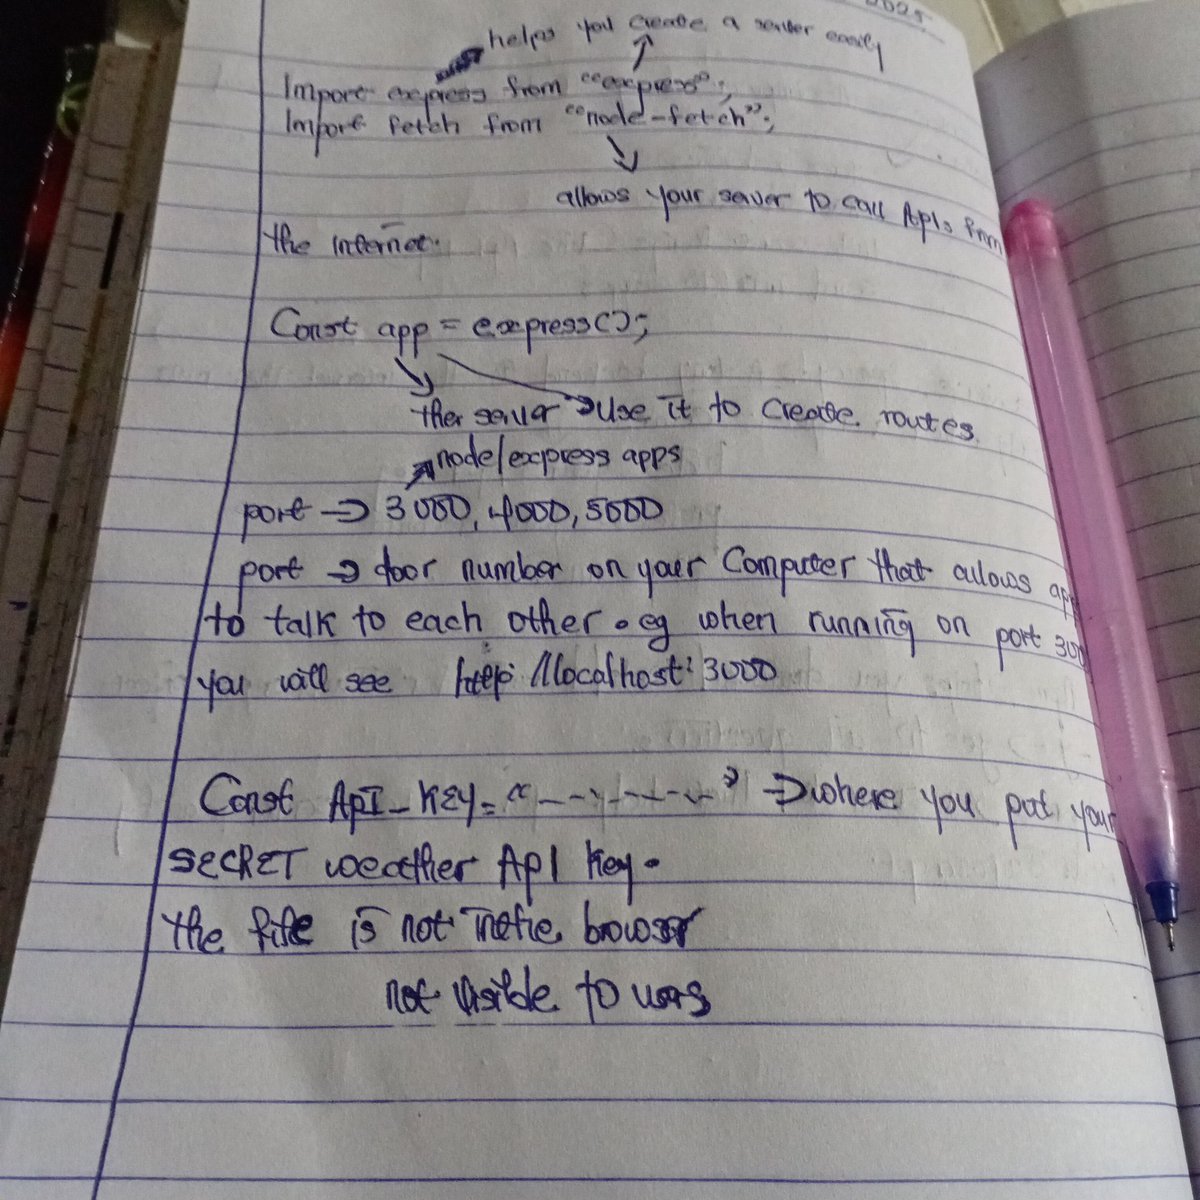 2025
helps you create a server easily
Import express from "express";
Import fetch from "node-fetch";
allows your server to call APIs from
the internet.
Const app = express();
ther server → Use it to create routes
node/express apps
port → 3000, 4000, 5000
port → door number on your Computer that allows app
to talk to each other. eg when running on port 300
you will see http://localhost:3000
Const API_KEY = "-------" → where you put your
SECRET weather API key.
the file is not in the browser
not visible to users